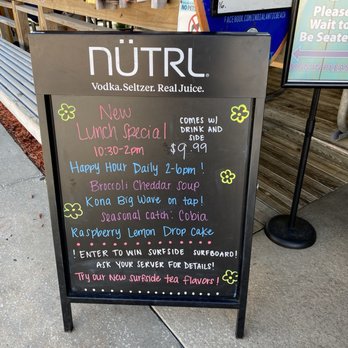 FACEBOOK.COM/THEATLANTICBEACH
Please
Wait to
Be Seated
NÜTRL
Vodka. Seltzer. Real Juice.
New
Lunch Special
10:30-2pm
COMES W/
DRINK AND
SIDE
$9.99
Happy Hour Daily 2-6pm!
Broccoli Cheddar Soup
Kona Big Wave on tap!
Seasonal catch: Cobia
Raspberry Lemon Drop Cake
! ENTER TO WIN SURFSIDE SURFBOARD!
ASK YOUR SERVER FOR DETAILS!
Try our New surfside tea flavors!